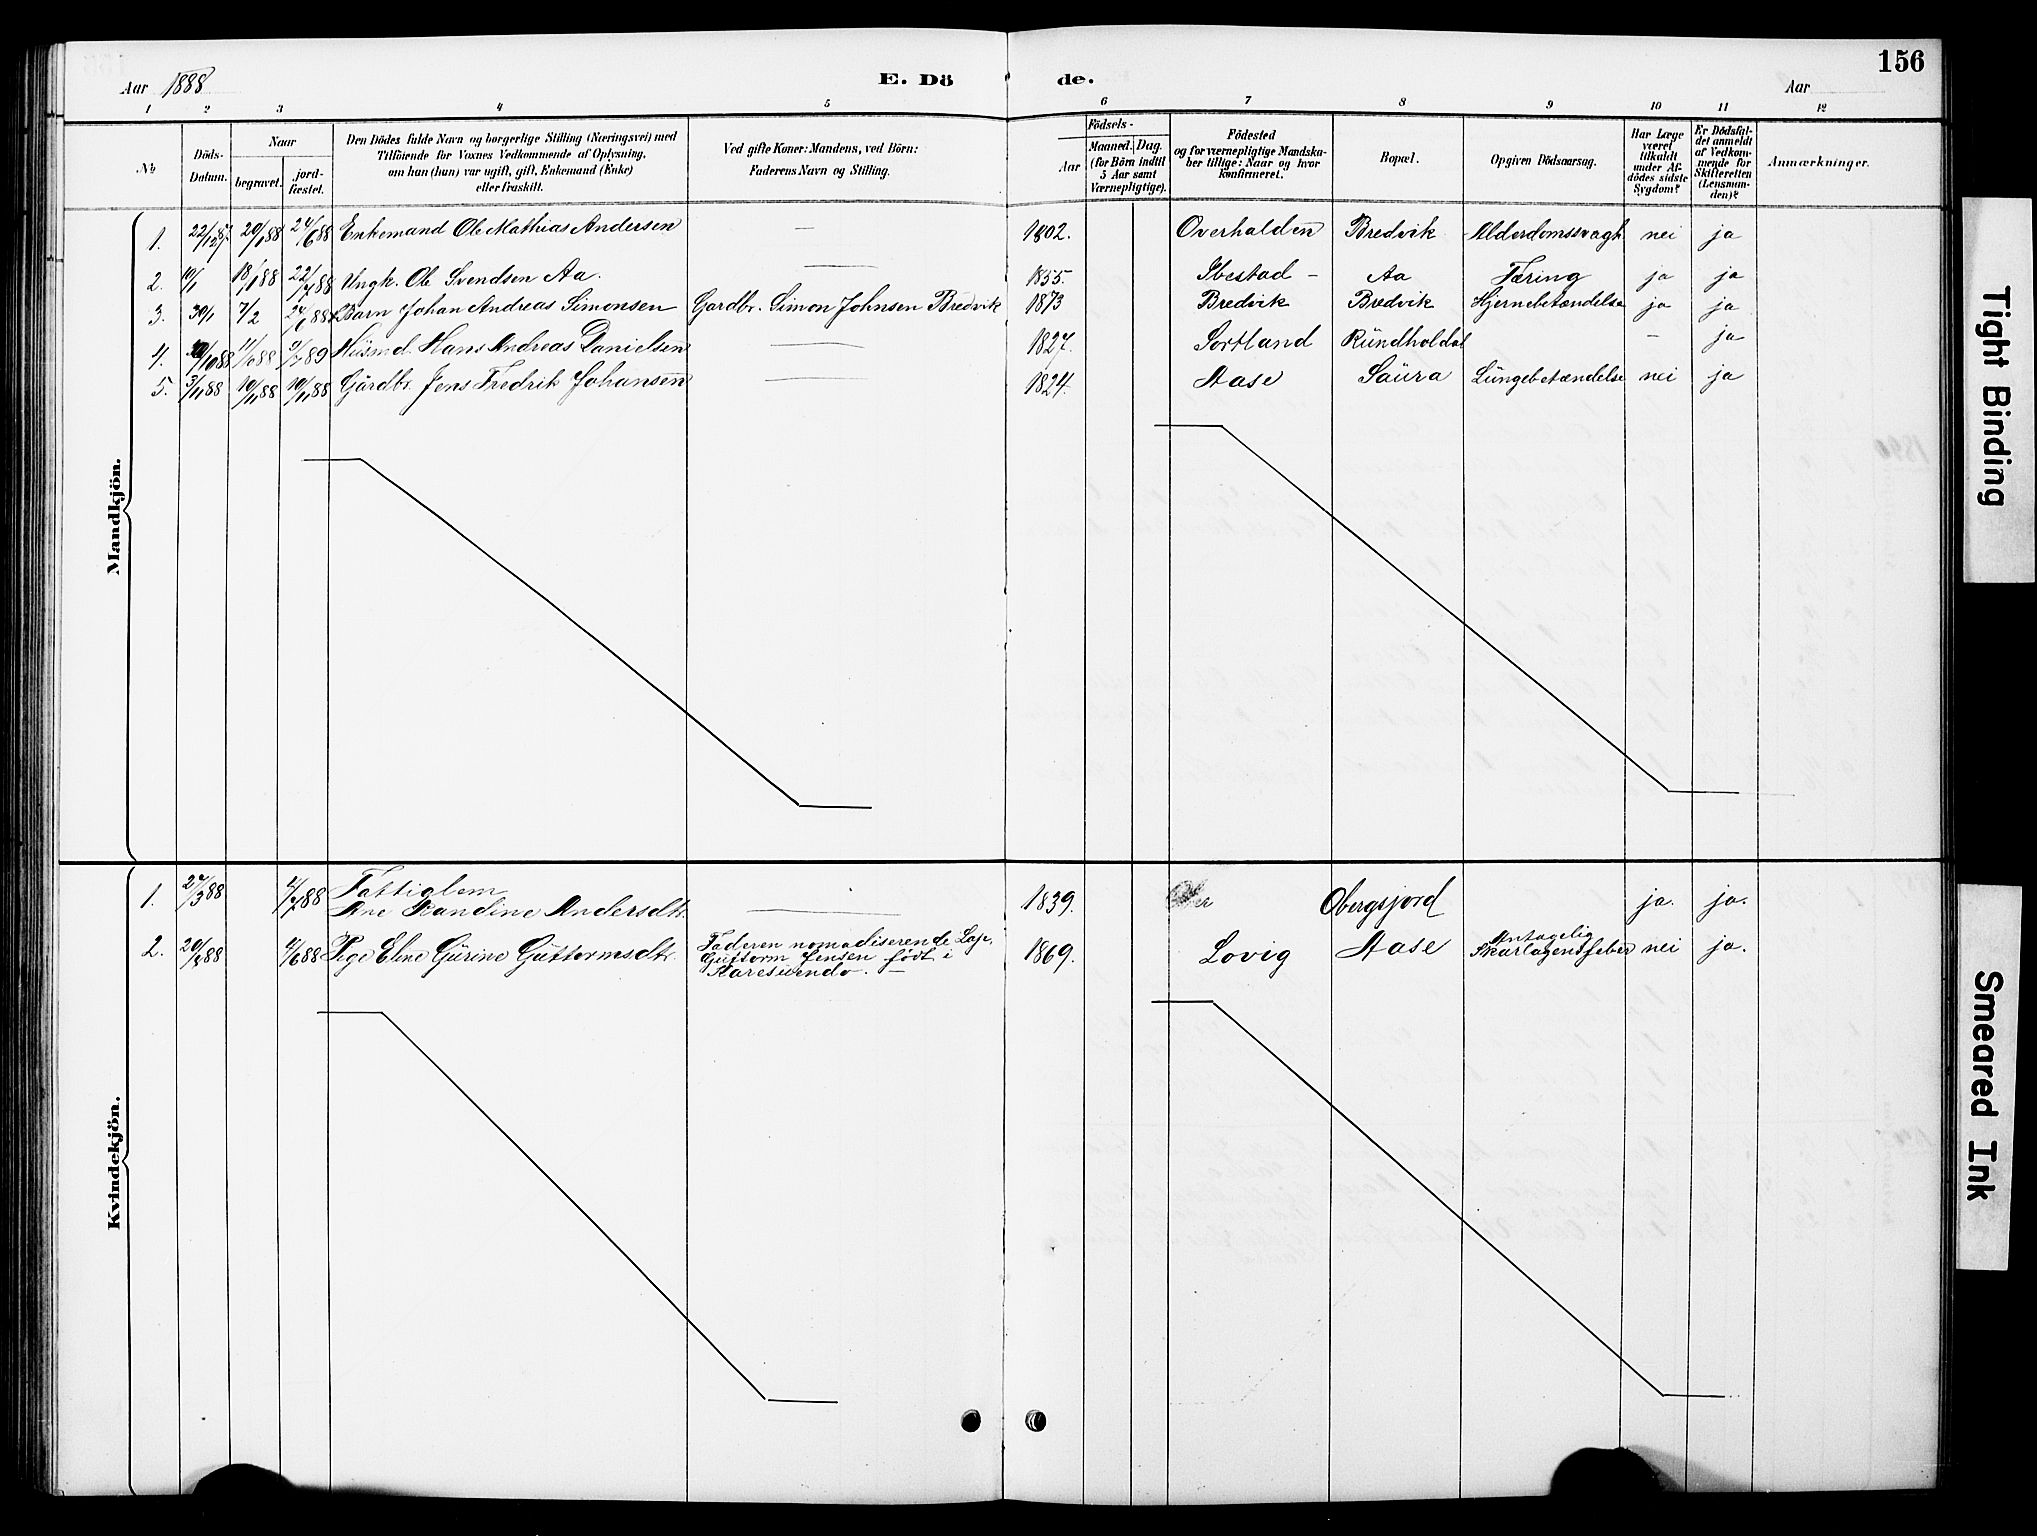 156
Aar 1888
E. Dö
de.
Aar
1 2 3 4 5 6 7 8 9 10 11 12
No
Döds-
Datum.
Naar
begravet.
jord-
fæstet.
Den Dödes fulde Navn og borgerlige Stilling (Næringsvei) med
Tilföiende for Voxnes Vedkommende af Oplysning,
om han (hun) var ugift, gift, Enkemand (Enke)
eller fraskilt.
Ved gifte Koner: Mandens, ved Börn:
Faderens Navn og Stilling.
Födsels-
Aar
Maaned. Dag.
(for Börn indtil
5 Aar samt
Værnepligtige).
Födested
og for værnepligtige Mandska-
ber tillige: Naar og hvor
konfirmeret.
Bopæl.
Opgiven Dödsaarsag.
Har Læge
været
tilkaldt
under Af-
dödes sidste
Sygdom?
Er Dödsfal-
det anmeldt
af Vedkom-
mende for
Skifteretten
(Lensman-
den)?
Anmærkninger.
Mandkjön.
1. 22/12 87 20/1 88 24/6 88 Enkemand Ole Mathias Andersen — 1802. Overhalden Bredvik Alderdomssvagh nei ja
2. 10/1 18/1 88 22/7 88 Ungk. Ole Svendsen Aa. — 1855. Ibestad - Aa Tæring ja ja
3. 30/1 7/2 24/6 88 Barn Johan Andreas Simonsen Gardbr. Simon Johnsen Bredvik 1873 Bredvik Bredvik Hjernebetændelse ja ja
4. Husmd. Hans Andreas Danielsen — 1827. Sortland Rundholdal — ja
5. 3/11 88 10/11 88 10/11 88 Gårdbr. Jens Fredrik Johansen — 1824. Aase Saura Lungebetændelse nei ja
Kvindekjön.
1. 27/3 88 4/7 88 Fattiglem
Ane Randine Andersdtr. — 1839. Obergsjord ja. ja.
2. 20/5 88 4/6 88 Pige Eline Gurine Guttormsdtr. Faderen nomadiserende Lap.
Guttorm Jensen født i
Karesuendo. — 1869. Lovig Aase Antagelig
Skarlagensfeber nei ja.
Tight Binding
Smeared Ink